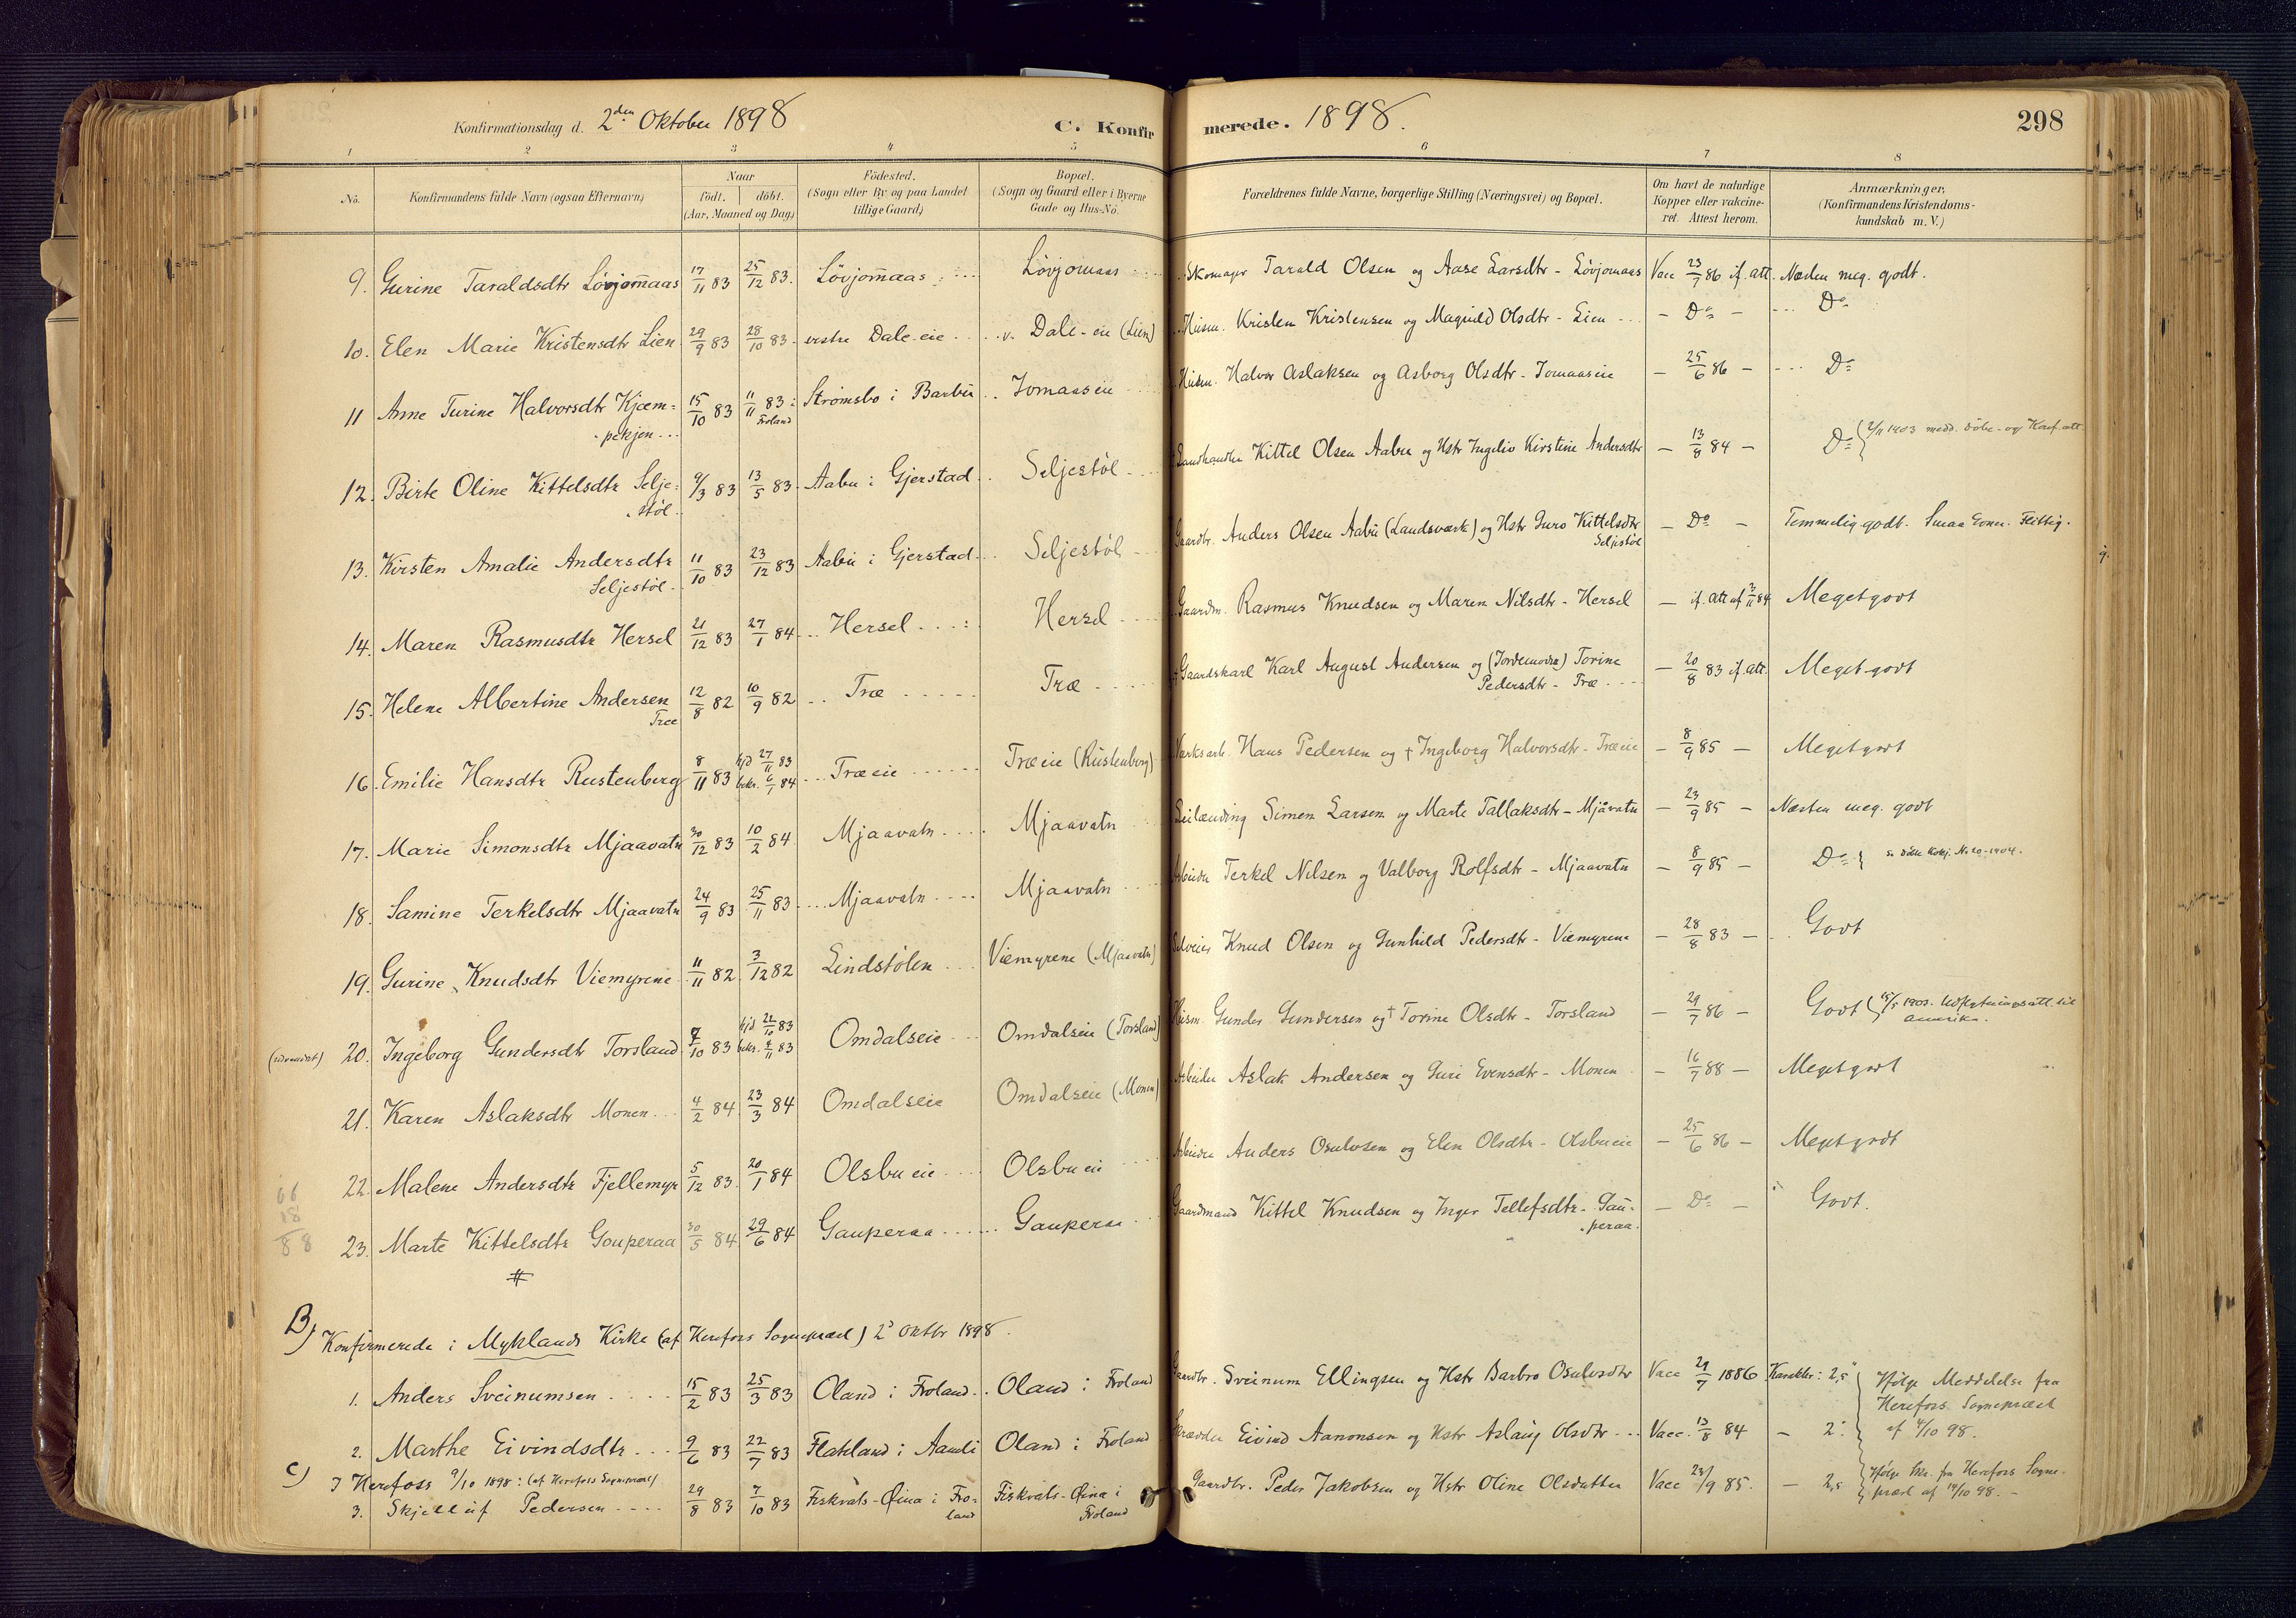 Konfirmationsdag d. 2den Oktober 1898
C. Konfirmerede. 1898.
298
1 2 3 4 5 6 7 8
No. Konfirmandens fulde Navn (ogsaa Efternavn) Naar født. døbt. (Aar, Maaned og Dag) Födested. (Sogn eller By og paa Landet tillige Gaard) Bopæl. (Sogn og Gaard eller i Byerne Gade og Hus-No. Forældrenes fulde Navne, borgerlige Stilling (Næringsvei) og Bopæl. Om havt de naturlige Kopper eller vakcineret. Attest herom. Anmærkninger, (Konfirmandens Kristendomskundskab m. V.)
9. Gurine Taraldsdtr Lövjomaas 17/11 83 25/12 83. Lövjomaas Lövjomaas Skomager Tarald Olsen og Aase Larsdtr - Lövjomaas Vacc 23/7 86 if. att. Næsten meg. godt.
10. Elen Marie Kristensdtr Lien 29/9 83 28/10 83 vestre Dale-eie v. Dale-eie (Lien) Husm. Kristen Kristensen og Magnild Olsdtr - Lien - Do - Do
11 Anne Turine Halvorsdtr Kjæm=pekjen 15/10 83 11/11 83 Froland Strömsbo i Barbu Jomaaseie Husm. Halvor Aslaksen og Asborg Olsdtr - Jomaaseie - 25/6 86 - Do
12. Birte Oline Kittelsdtr Selje=støl 9/3 83 13/5 83 Aabu i Gjerstad Seljestöl Landhandler Kittel Olsen Aabu og Hstr Ingelev Kirstine Andersdtr - 13/8 84 - Do 2/11 1903 medd. Döbe- og Konf.att.
13. Kirsten Amalie Andersdtr Seljestöl 11/10 83 23/12 83 Aabu i Gjerstad Seljestöl Gaardbr. Anders Olsen Aabu (Landsværk) og Hstr Guro Kittelsdtr Seljestöl - Do - Temmelig godt. Smaa Evner. Flittig.
14. Maren Rasmusdtr Hersel 21/12 83 27/1 84 Hersel Hersel Gaardm. Rasmus Knudsen og Maren Nilsdtr - Hersel - if. att af 3/11 84 Meget godt
15. Helene Albertine Andersen Træ 12/8 82 10/9 82 Træ Træ Gaardskarl Karl August Andersen og (Jordemoder) Torine Pedersdtr - Træ - 20/8 83 if. att. Meget godt
16. Emilie Hansdtr Rustenberg 8/11 83 hjd 27/11 83 bekr. 6/1 84 Træeie Træeie (Rustenberg) Værksarb. Hans Pedersen og † Ingeborg Halvorsdtr - Træeie - 8/9 85 - Meget godt
17. Marie Simonsdtr Mjaavatn 30/12 83 10/2 84 Mjaavatn Mjaavatn Leilænding Simen Larsen og Marte Tallaksdtr - Mjåvatn - 23/9 85 - Næsten meg. godt
18. Samine Terkelsdtr Mjaavatn 24/9 83 25/11 83 Mjaavatn Mjaavatn Arbeider Terkel Nilsen og Valborg Rolfsdtr - Mjaavatn - 8/9 85 - Do
19. Gurine Knudsdtr Viemyrene 11/11 82 3/12 82 Lindstölen Viemyrene (Mjaavatn) Selveier Knud Olsen og Gunhild Pedersdtr - Viemyrene - 28/8 83 - Godt
20. Ingeborg Gundersdtr Torsland 7/10 83 hjd 22/10 83 bekr. 4/11 83 Omdalseie Omdalseie (Torsland) Husm. Gunder Gundersen og † Torine Olsdtr - Torsland - 29/7 86 - Godt 15/5 1903. Udflytningsatt. til Amerika.
21. Karen Aslaksdtr Monen 4/2 84 23/3 84 Omdalseie Omdalseie (Monen) Arbeider Aslak Andersen og Guri Evensdtr - Monen - 16/7 88 - Meget godt
22. Malene Andersdtr Fjellemyr 5/12 83. 20/1 84 Olsbu eie Olsbu eie Arbeider Anders Osulvsen og Elen Olsdtr - Olsbueie - 25/6 86 - Meget godt
66
18
88
23. Marte Kittelsdtr Gouperaa 30/5 84 29/6 84 Gauperaa Gauperaa Gaardmand Kittel Knudsen og Inger Tellefsdtr - Gau-peraa. - Do - Godt.
B) Konfirmerede i Myklands Kirke (af Herefoss Sognepræst) 2d Oktbr 1898.
1. Anders Sveinumsen 15/2 83 25/3 83 Oland i Froland Oland i Froland Gaardbr. Sveinum Ellingsen og Hstr Barbro Osulvsdtr Vacc 29/7 1886 Karakter: 2,5 Ifølge Meddelelse fra Herefoss Sognepræst af 4/10 98.
2. Marthe Eivindsdtr 9/6 83 22/7 83 Flateland i Aamli Oland i Froland Skrædder Eivind Aanonsen og Hstr Aslaug Olsdtr Vacc. 13/8 84 - 2
C) I Herefoss 9/10 1898: (af Herefoss Sognepræst)
3. Skjelluf Pedersen 29/8 83 7/10 83 Fiskvats-Øina i Fro-land Fiskvats-Øina i Froland Gaardbr. Peder Jakobsen og Hstr Oline Olsdatter Vacc 23/9 85. - 2,5 Ifølge Skr. fra Herefoss Sognepræst af 14/10 98.